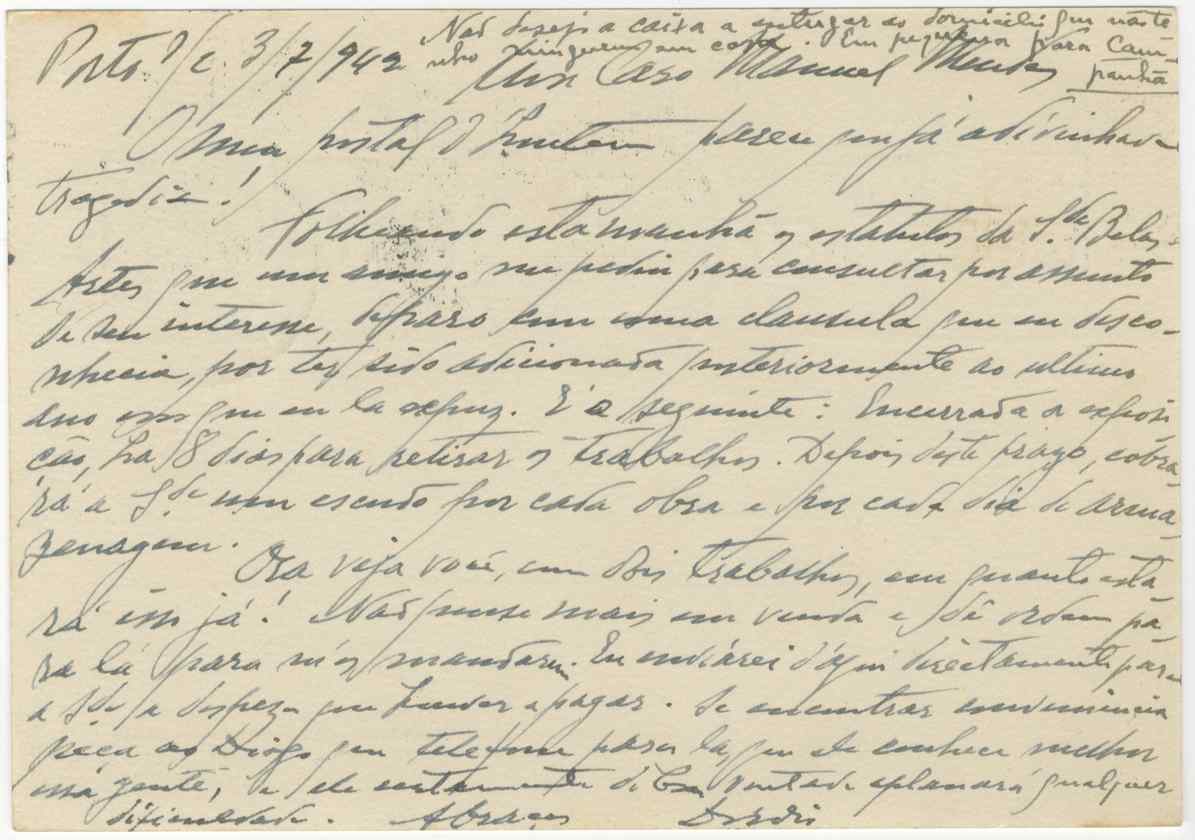 Não desejo a caixa a entregar ao domicilio que não te
nho ninguem em casa. Em pequena para Cam
panhã
Porto, 3/7/942
Meu Caro Manuel Mendes
O meu postal d'hontem parece que já adivinhava
tragedia!
Folheando esta manhã os estatutos da S.de Belas-
Artes que um amigo me pediu para consultar por assunto
de seu interesse, deparo com uma clausula que eu desco-
nhecia, por ter sido adicionada posteriormente ao ultimo
ano em que eu la expuz. E a seguinte: Encerrada a exposi
ção, ha 8 dias para retirar os trabalhos. Depois deste prazo, cobra
rá a S.de um escudo por cada obra e por cada dia de arma-
zenagem.
Ora veja você, com dois trabalhos, em quanto esta
rá isso já! Não pense mais em venda e dê ordem pa
ra lá para m'os mandarem. Eu enviarei d'aqui directamente para
a S.de a despeza que houver a pagar. Se encontrar conveniencia
peça ao Diogo que telefone para la, que ele conhece melhor
essa gente, e ele certamente de boa vontade aplanará qualquer
dificuldade. Abraços